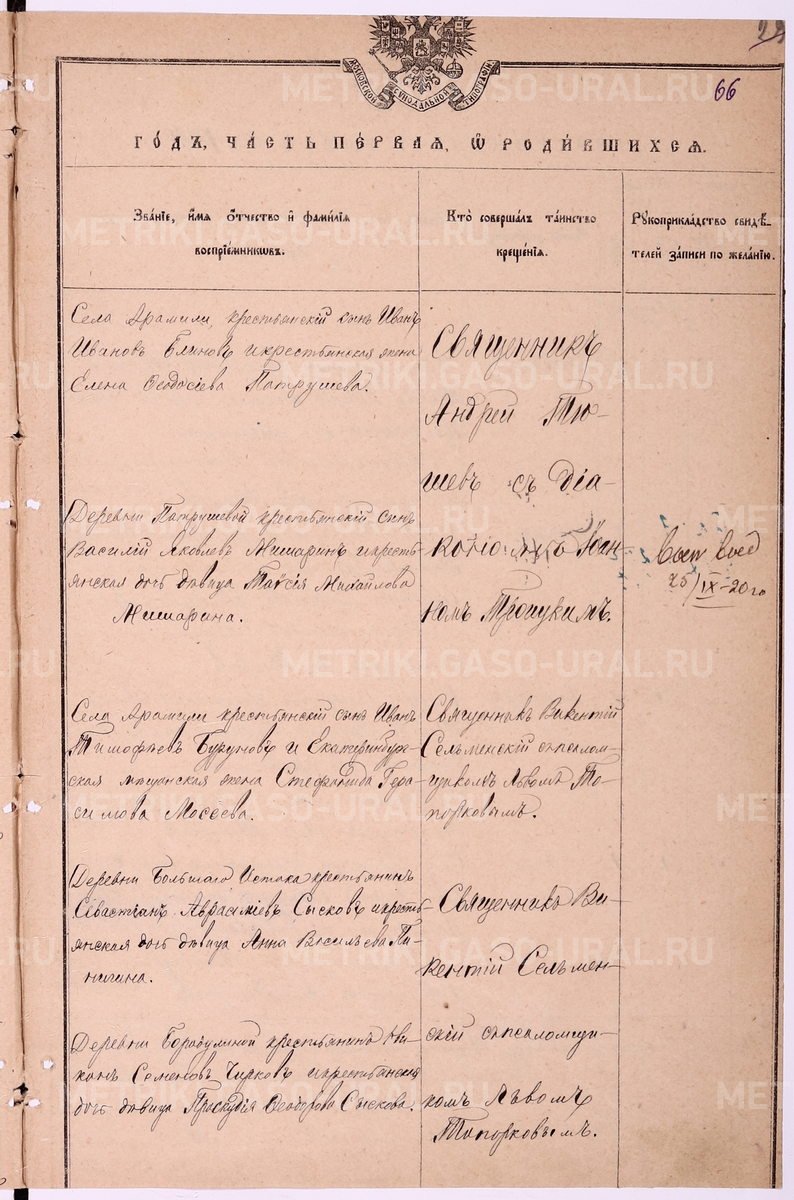 29
66
МОСКОВСКОЙ СѴНОДАЛЬНОЙ ТИПОГРАФІИ
ГО́ДЪ, ЧА́СТЬ ПЕ́РВАЯ, Ѡ҆ РОДИ́ВШИХСѦ.
Зва́нїе, и҆́мѧ ѻ҆́тчество и҆ фамі́лїѧ
воспрїе́мникѡвъ.
Кто̀ соверша́лъ та́инство
креще́нїѧ.
Рꙋкоприкла́дство свидѣ́-
телей за́писи по жела́нїю.
Села Арамили, крестьянскій сынъ Иванъ
Ивановъ Блиновъ и крестьянская жена
Елена Ѳеодосіева Патрушева.
Священникъ
Андрей Тю-
шевъ съ діа-
кономъ Іоан-
номъ Троицкимъ.
Деревни Патрушевой крестьянскій сынъ
Василій Яковлевъ Мишаринъ и кресть-
янская дочь дѣвица Таисія Михайлова
Мишарина.
25/IX-20го
Села Арамили крестьянскій сынъ Иванъ
Тимофѣевъ Бушуновъ и Екатеринбург-
ская мѣщанская жена Стефанида Гера-
симова Мосеева.
Священникъ Викентій
Сельменскій съ псалом-
щикомъ Львомъ То-
порковымъ.
Деревни Большаго Истока крестьянинъ
Севастіанъ Авраміевъ Сысковъ и кресть-
янская дочь дѣвица Анна Васильева Пи-
нигина.
Священникъ Ви-
кентій Сельмен-
скій съ псаломщи-
комъ Львомъ
Топорковымъ.
Деревни Бородулиной крестьянинъ Ни-
конъ Семеновъ Чирковъ и крестьянская
дочь дѣвица Праскудія Ѳеодорова Сыскова.
METRIKI.GASO-URAL.RU